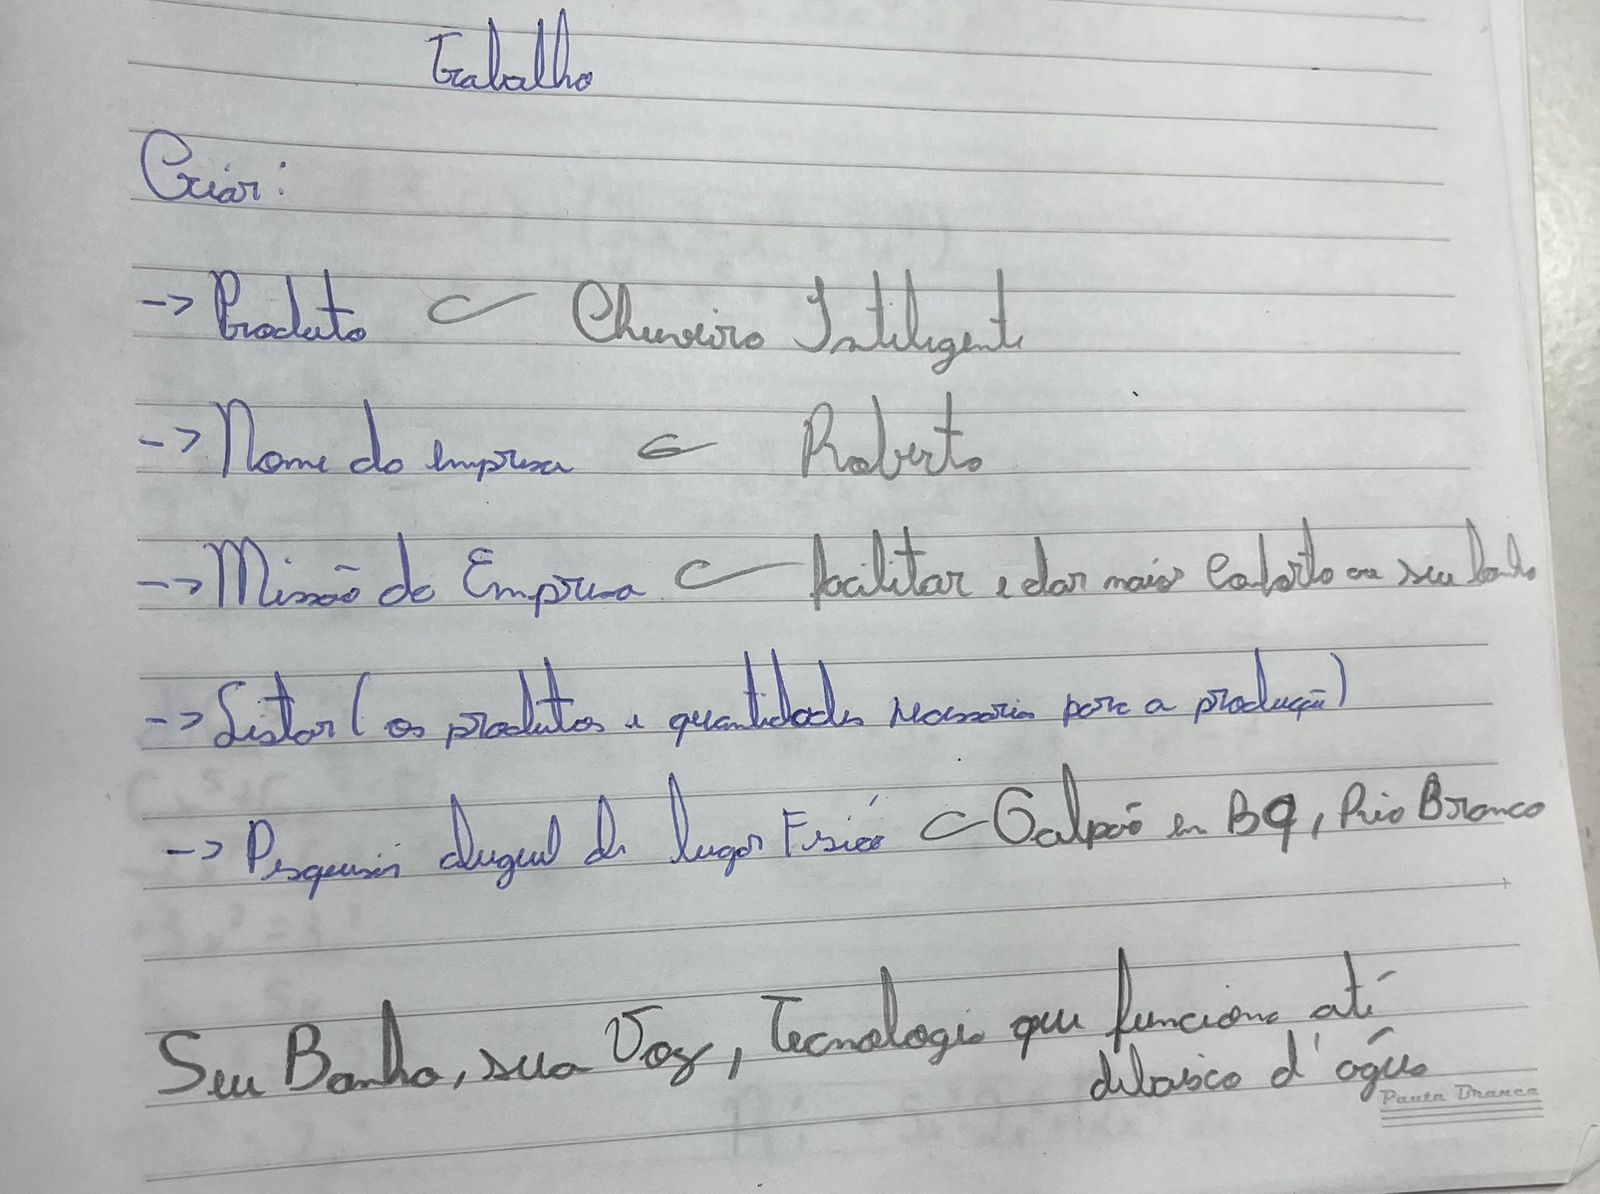 Trabalho
Criar:
-> Produto Chuveiro Inteligente
-> Nome da empresa Roberto
-> Missão da Empresa facilitar e dar mais Coforto ao seu banho
-> Listar ( os produtos e quantidades necessaria para a produção)
-> Pesquisar aluguel de lugar Fisico Galpão em BQ, Rio Branco
Seu Banho, sua Voz, Tecnologia que funciona até
debaixo d'água
Pauta Branca